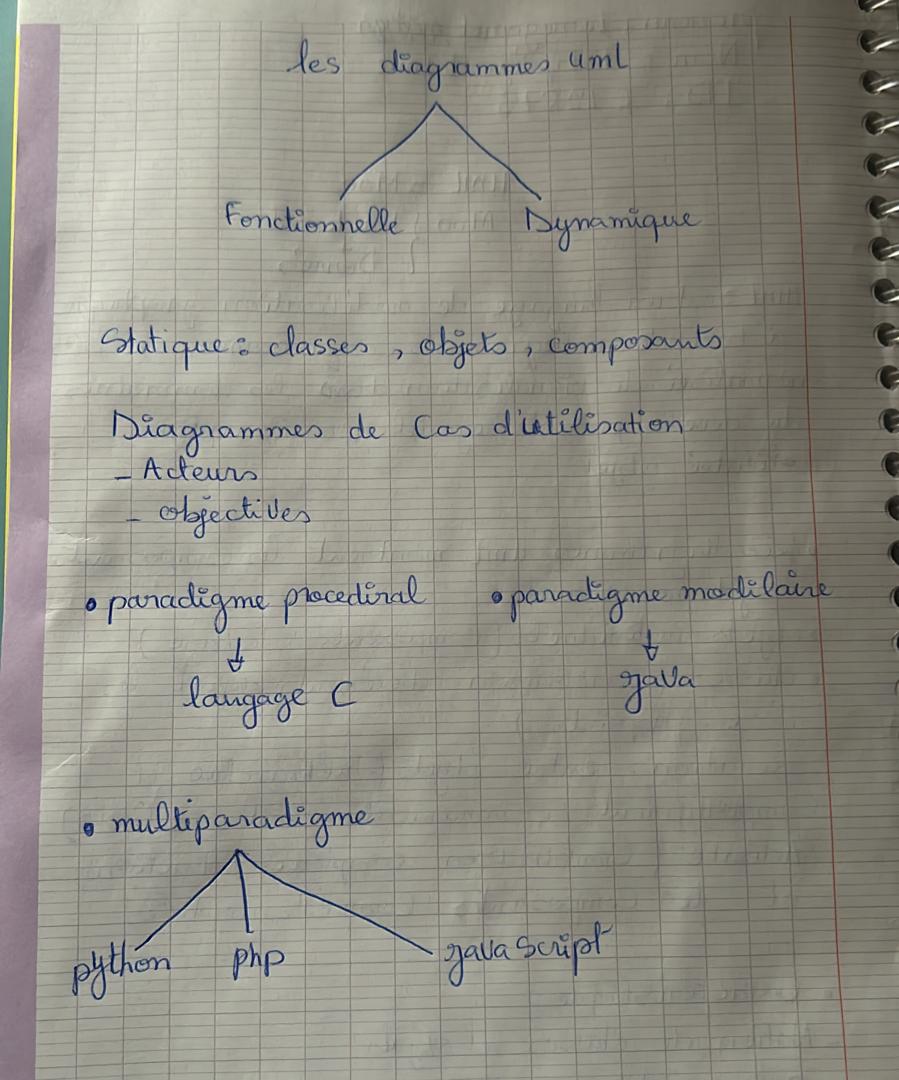 les diagrammes uml
Fonctionnelle Dynamique
Statique : classes , objets , composants
Diagrammes de Cas d'utilisation
- Acteurs
- objectives
• paradigme procediral • paradigme modilaire
↓ ↓
langage C java
• multiparadigme
python php java script